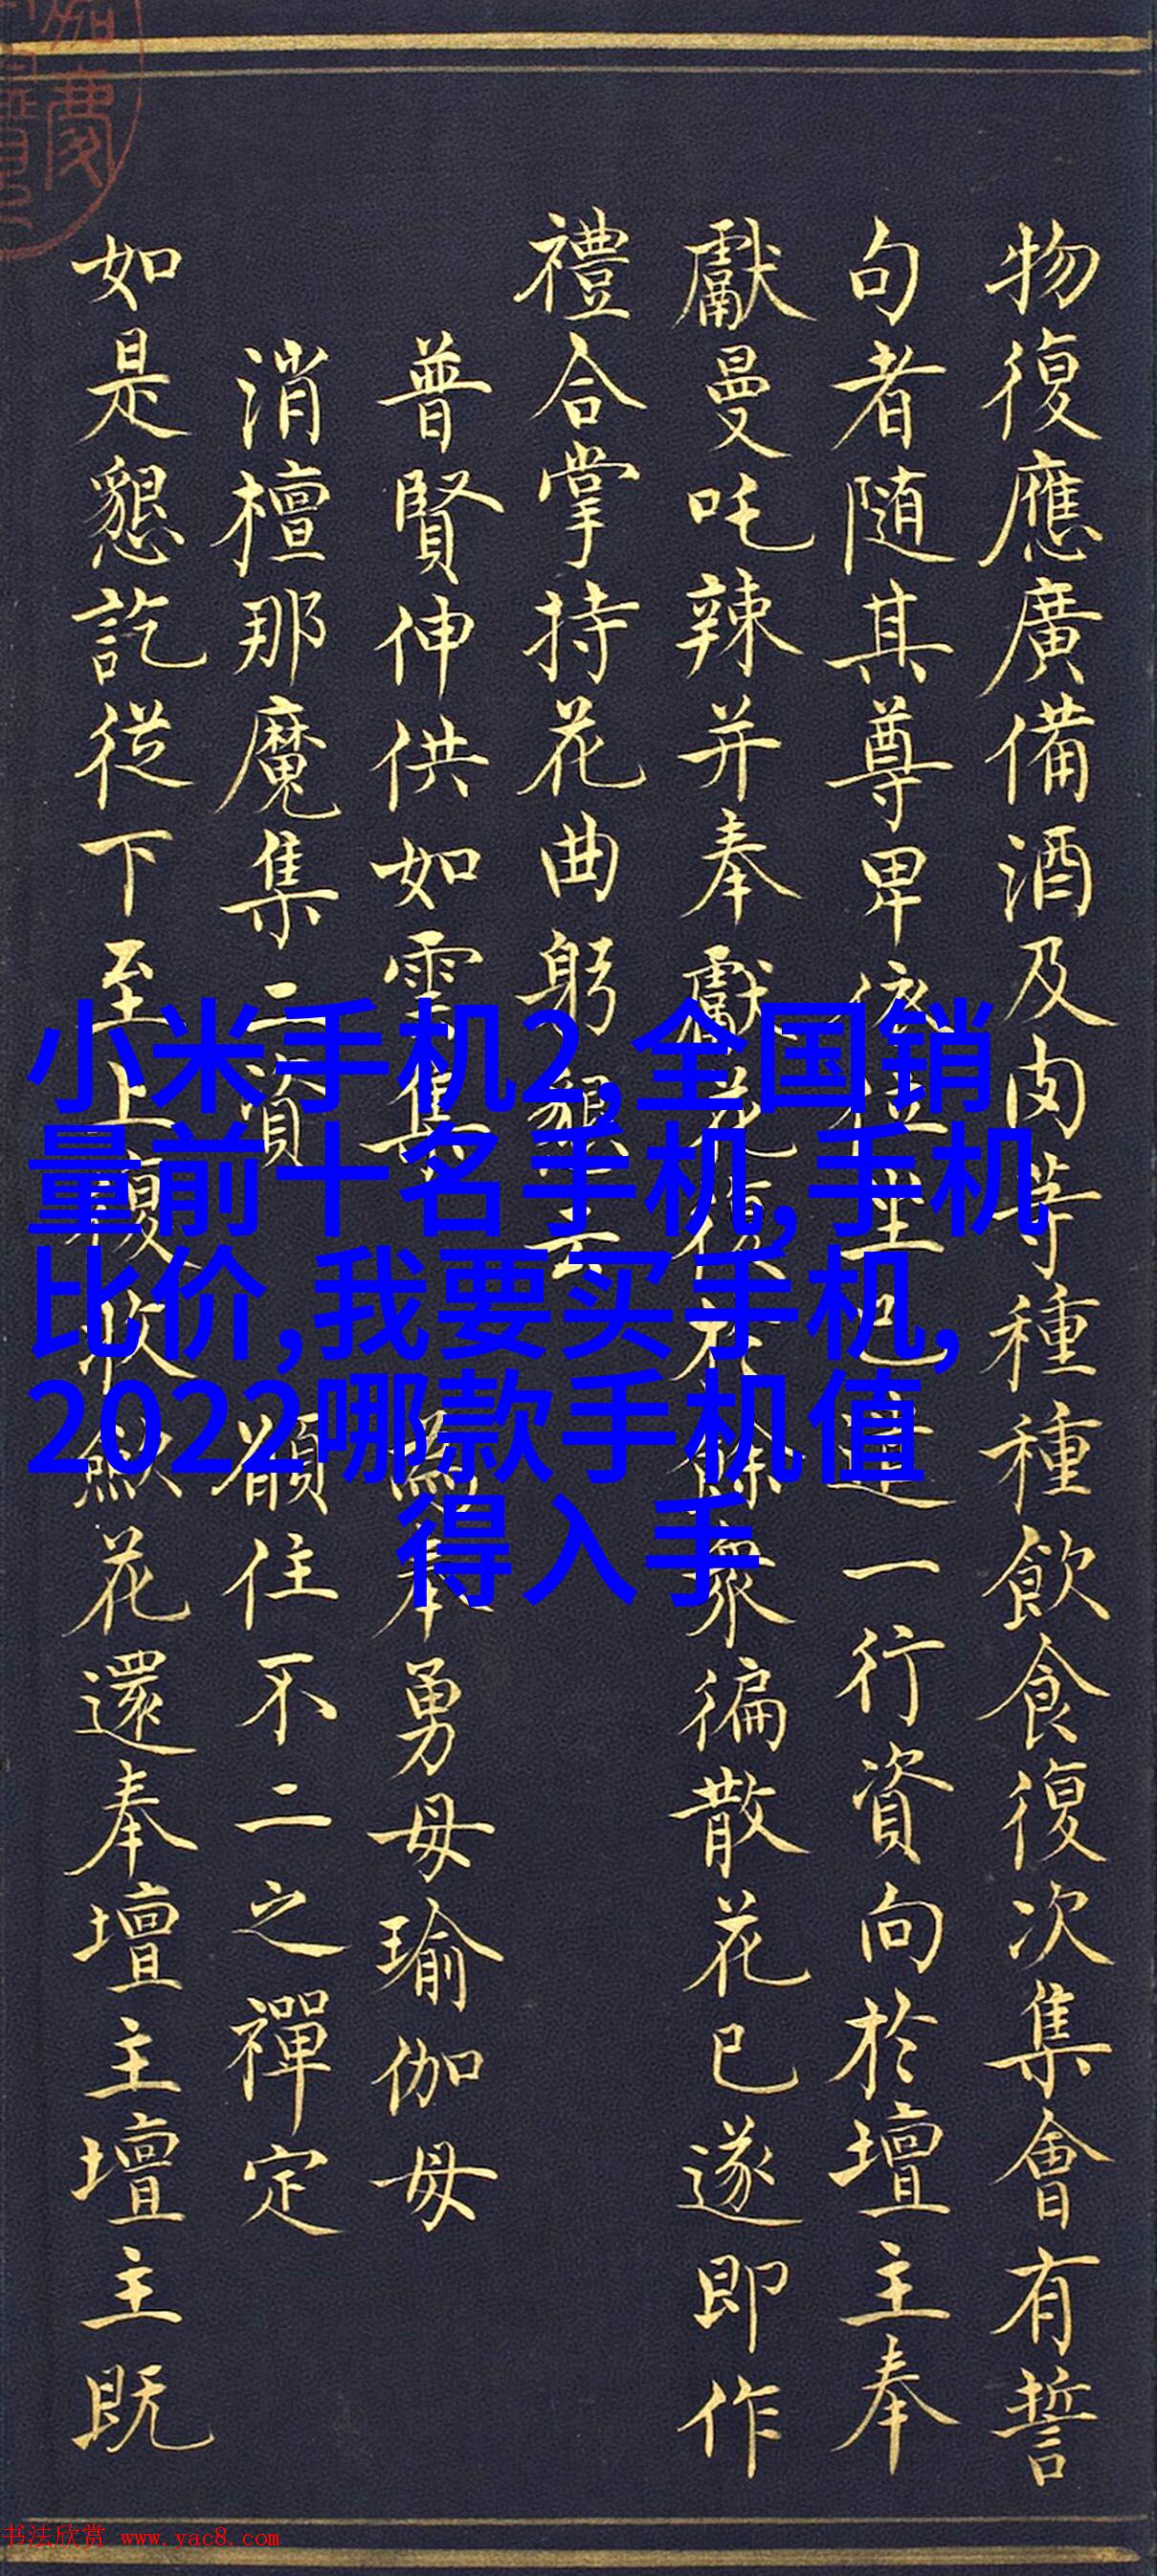 物復應廣備酒及肉等種種飲食復次集會有誓
句者随其尊卑依位坐已一行資向於壇主奉
獻曼吒辣并奉獻花復於餘衆徧散花已遂即作
禮合掌持花曲躬懇云
普賢伸供如雲集 為奉勇母瑜伽母
消檀那魔集二資 願住不二之禪定
如是懇訖從下至上復收歛花還奉壇主壇主既
小米手机2,全国销
量前十名手机,手机
比价,我要买手机,
2022哪款手机值
得入手
书法欣赏 www.yac8.com